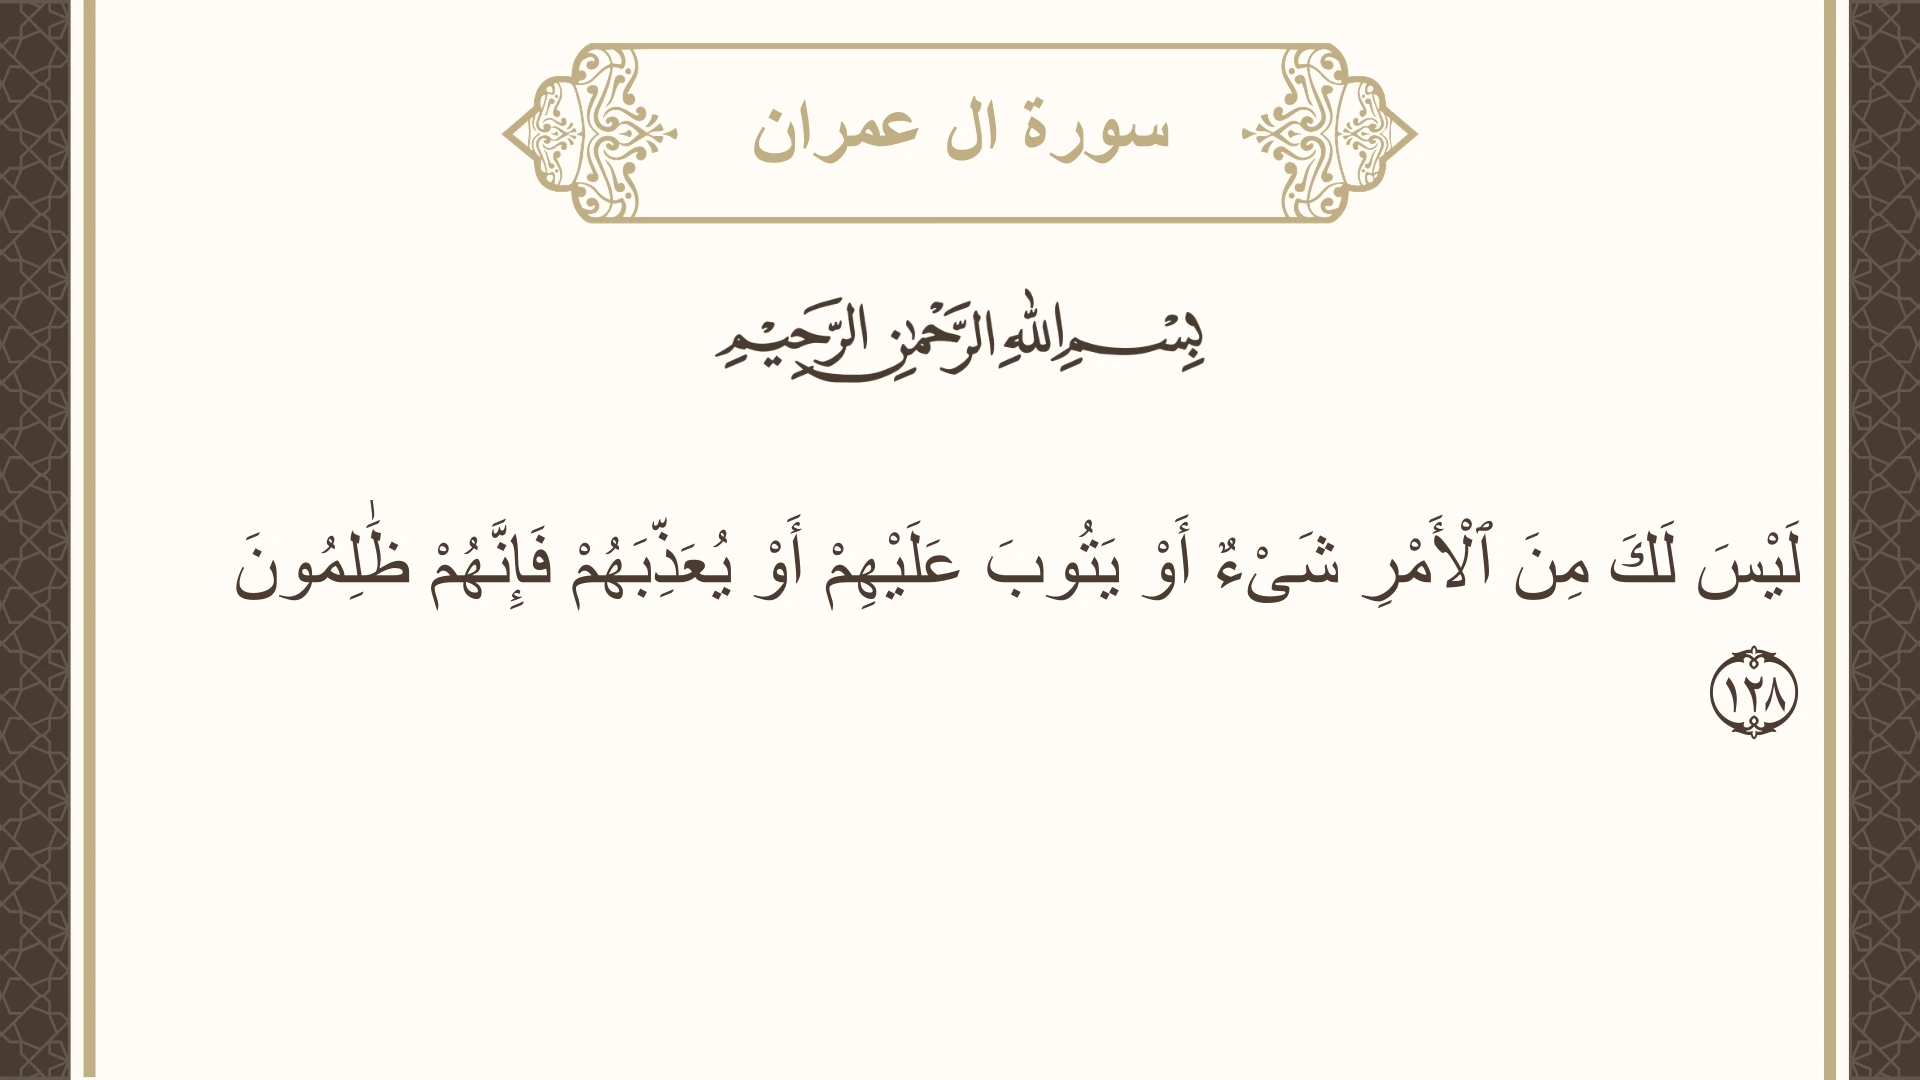 سورة ال عمران
بِسْمِ اللهِ الرَّحْمٰنِ الرَّحِيْمِ
لَيْسَ لَكَ مِنَ ٱلْأَمْرِ شَىْءٌ أَوْ يَتُوبَ عَلَيْهِمْ أَوْ يُعَذِّبَهُمْ فَإِنَّهُمْ ظَٰلِمُونَ
١٢٨